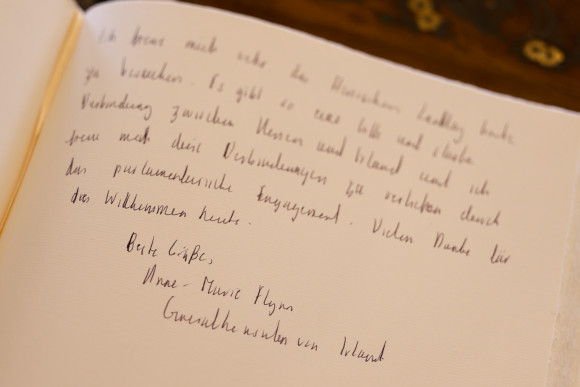 Ich freue mich sehr den Hessischen Landtag heute
zu besuchen. Es gibt so eine tolle und starke
Verbindung zwischen Hessen und Irland und ich
freue mich diese Verbindungen zu vertiefen durch
das parlamentarische Engagement. Vielen Danke für
das Willkommen heute.
Beste Grüße,
Anne-Marie Flynn
Generalkonsulin von Irland